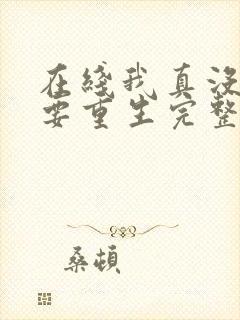 在綫我真没
要重生完整
桑顿